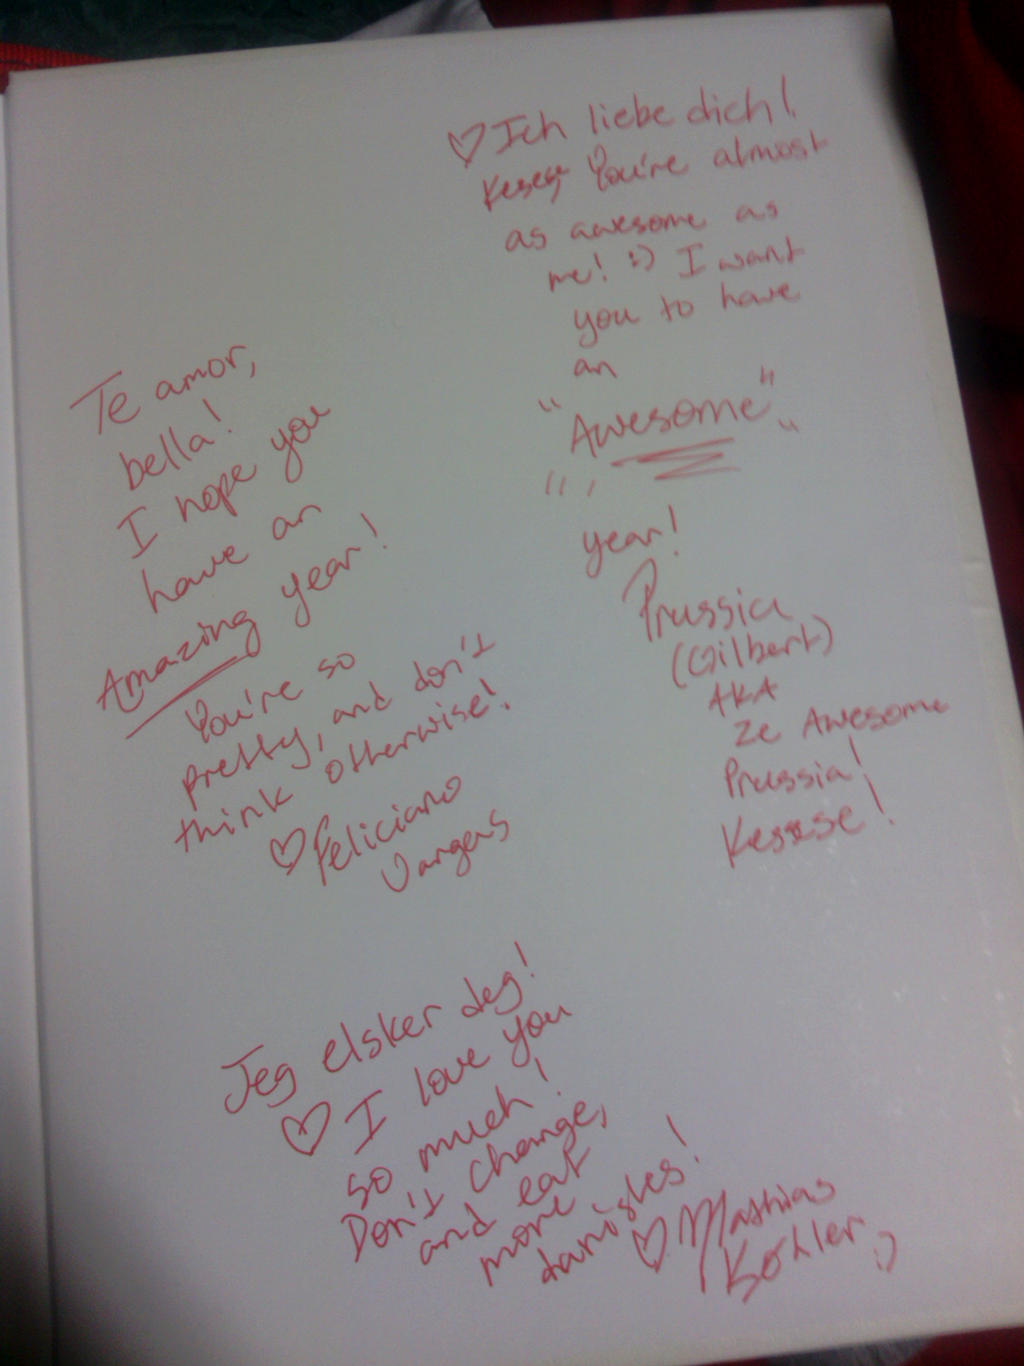 ♡ Ich liebe dich!
Kesese, You're almost
as awesome as
me! :) I want
you to have
an
"Awesome"
year!
Prussia
(Gilbert)
AKA
Ze Awesome
Prussia!
Kesese!
Te amor,
bella!
I hope you
have an
Amazing year!
You're so
pretty, and don't
think otherwise!
♡ Feliciano
Vargas
Jeg elsker deg!
♡ I love you
so much!
Don't change,
and eat
more
danishes!
♡ Mathias
Kohler :)